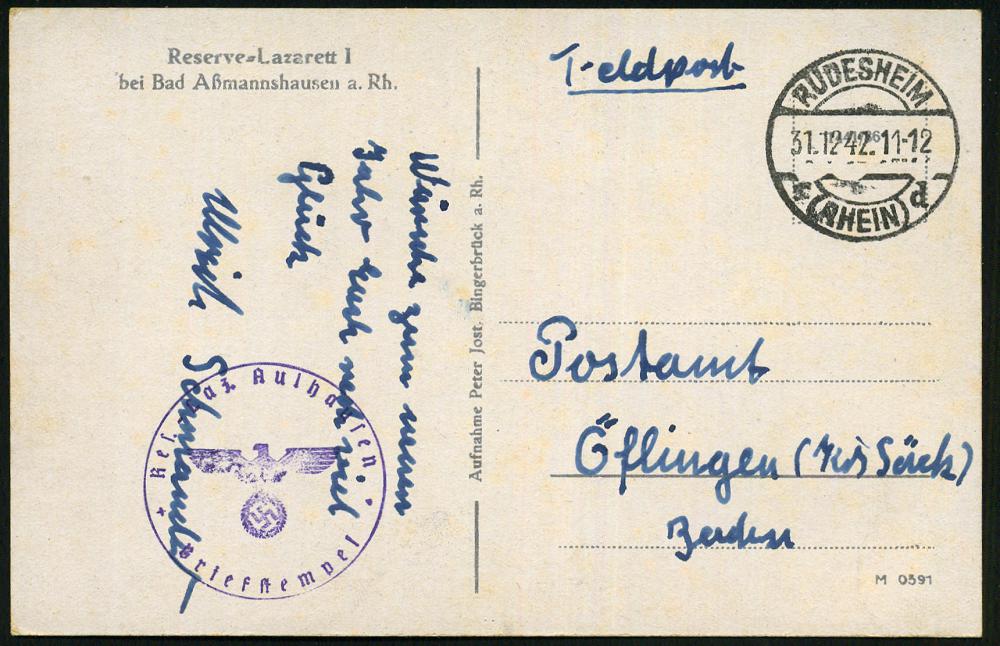 Reserve-Lazarett I
bei Bad Aßmannshausen a. Rh.
Wünsche zum neuen
Jahr Euch viel
Glück
Ulrich
Res. Laz. Aulhausen
Briefstempel
Aufnahme Peter Jost, Bingerbrück a. Rh.
Feldpost
RÜDESHEIM
31.12.42.11-12
(RHEIN) d
Postamt
Öflingen (Krs Säck)
Baden
M 0391